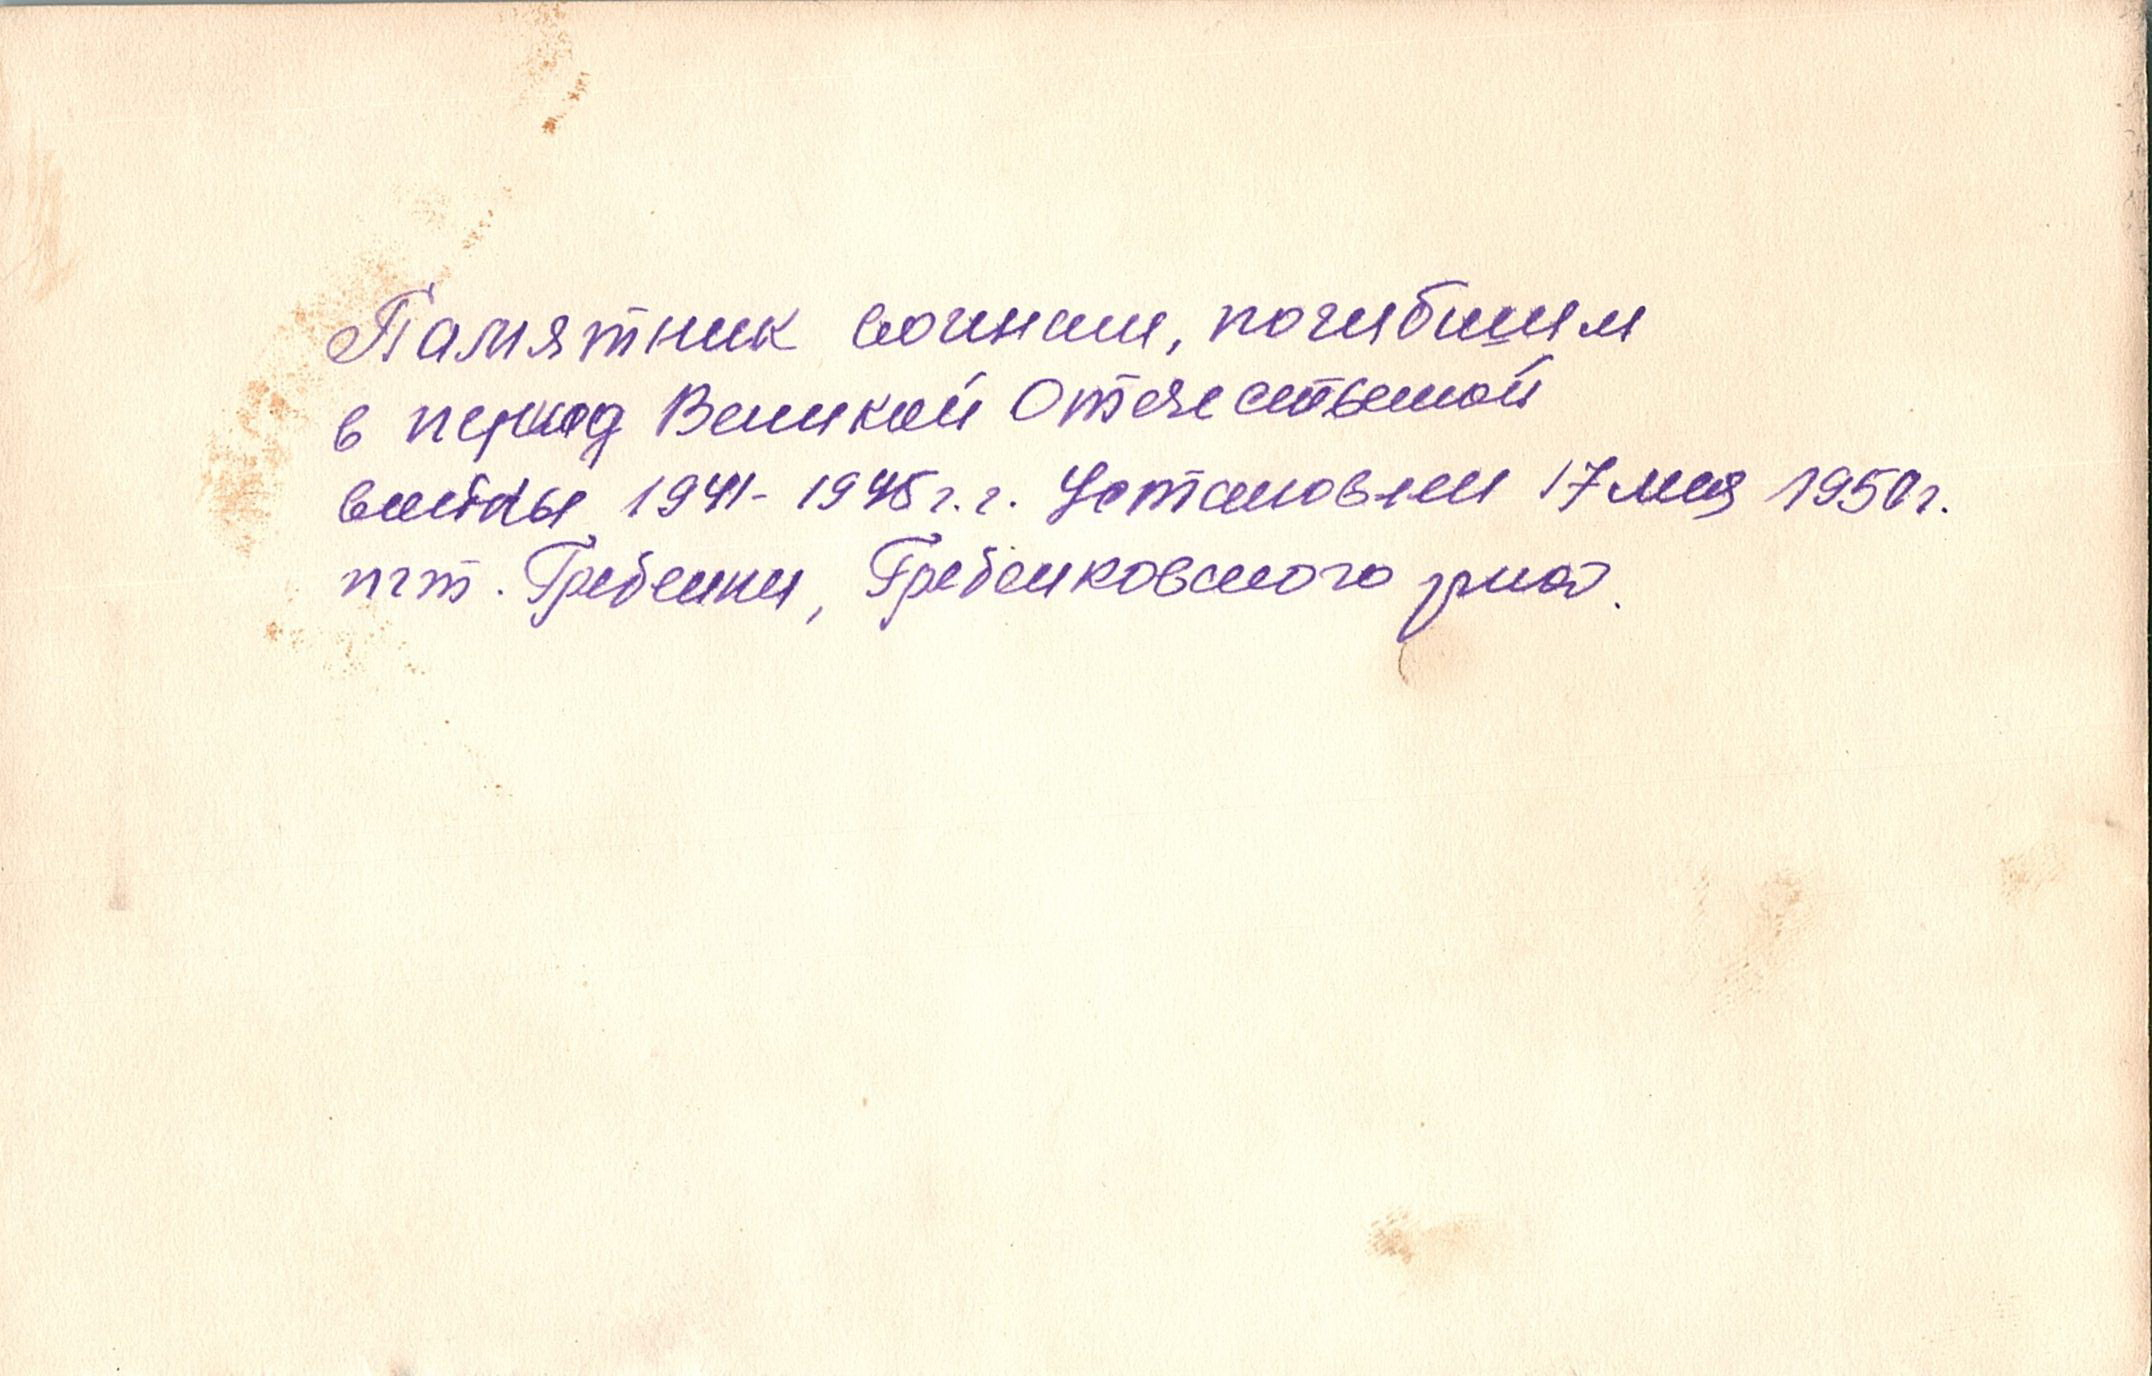 Памятник воинам, погибшим
в период Великой Отечественной
войны 1941-1945 г.г. Установлен 17 мая 1950 г.
пгт. Гребенки, Гребенковского р-на.